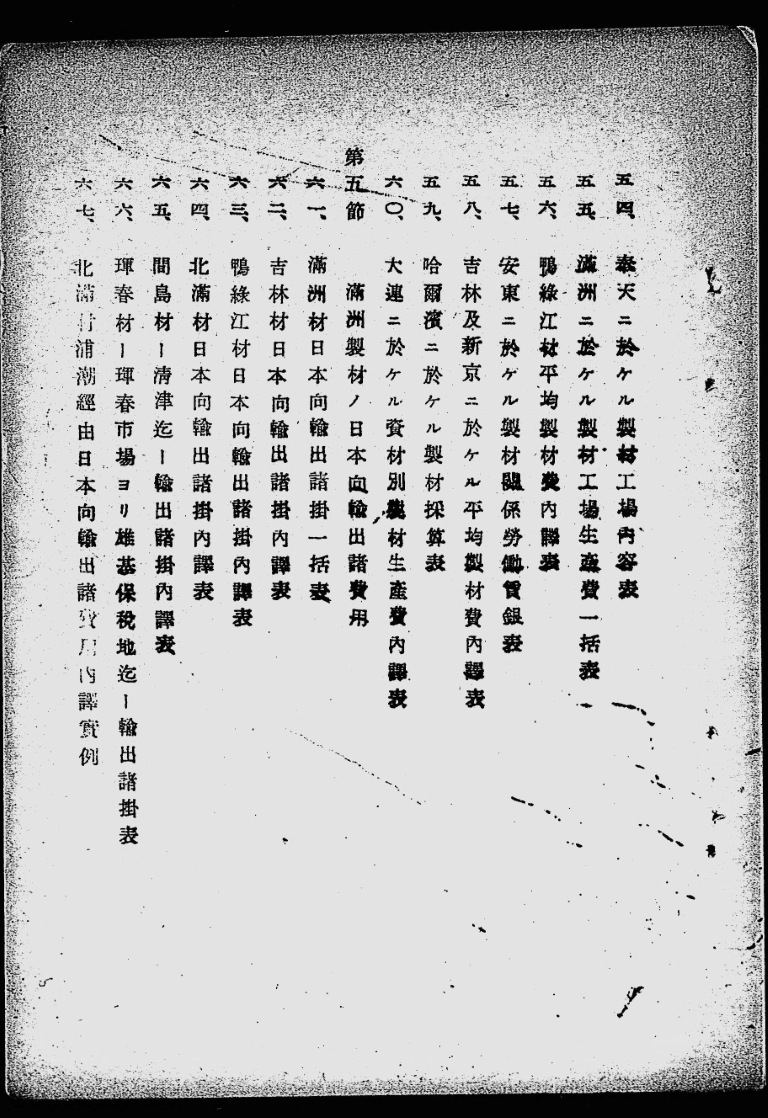 五四、奉天ニ於ケル製材工場內容表
五五、滿洲ニ於ケル製材工場生產費一括表
五六、鴨綠江材平均製材費內譯表
五七、安東ニ於ケル製材關係勞働賃銀表
五八、吉林及新京ニ於ケル平均製材費內譯表
五九、哈爾濱ニ於ケル製材採算表
六〇、大連ニ於ケル資材別製材生產費內譯表
第五節 滿洲製材ノ日本向輸出諸費用
六一、滿洲材日本向輸出諸掛一括表
六二、吉林材日本向輸出諸掛內譯表
六三、鴨綠江材日本向輸出諸掛內譯表
六四、北滿材日本向輸出諸掛內譯表
六五、間島材ー清津迄ー輸出諸掛內譯表
六六、琿春材ー琿春市場ヨリ雄基保稅地迄ー輸出諸掛表
六七、北滿材浦潮經由日本向輸出諸費用內譯實例